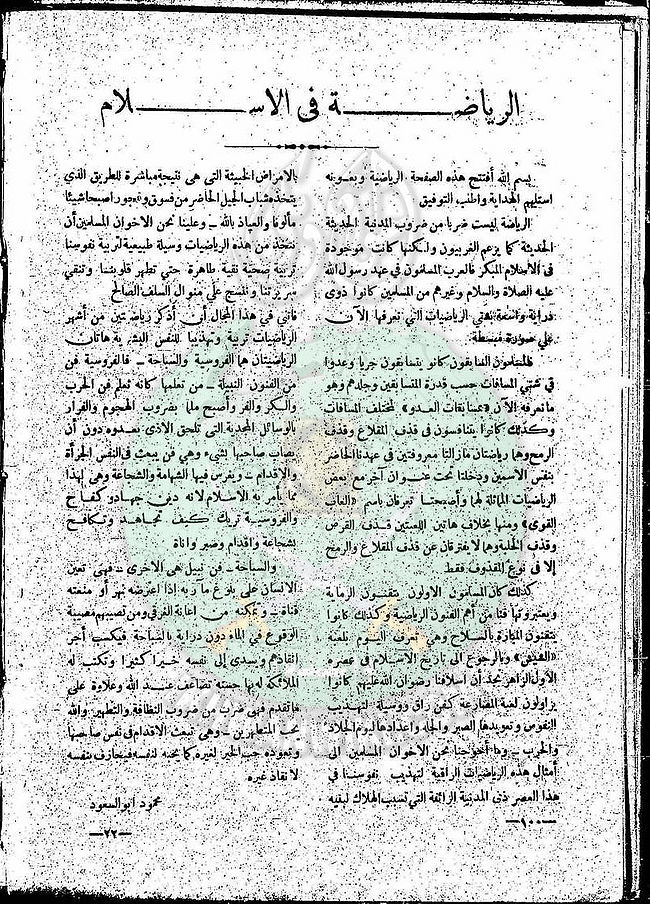 الرياضة في الاسلام
بسم الله أفتتح هذه الصفحة الرياضية وبعونه
استلهم الهداية واطلب التوفيق
الرياضة ليست ضربا من ضروب المدنية الحديثة
الحديثة كما يزعم الغربيون ولكنها كانت موجودة
في الاسلام المبكر فالعرب المسلمون في عهد رسول الله
عليه الصلاة والسلام وغيرهم من المسلمين كانوا ذوى
دراية واسعة بشتى الرياضيات التي نعرفها الآن
علي صورة مبسطة
فالمسلمون السابقون كانو يتسابقون جريا وعدوا
في شتى المسافات حسب قدرة المتسابقين وجلدهم وهو
ما نعرفه الآن «بمسابقات العدو» لمختلف المسافات
وكذلك كانوا يتنافسون في قذف المقلاع وقذف
الرمح وهما رياضتان مازالتا معروفتين في عهدنا الحاضر
بنفس الاسمين ودخلتا تحت عنوان آخر مع بعض
الرياضيات المماثلة لهما وأصبحتا تعرفان باسم «العاب
القوى» ومنها بخلاف هاتين اللعبتين قذف القرص
وقذف الجلة وهما لا يفترقان عن قذف المقلاع والرمح
إلا في نوع المقذوف فقط
كذلك كان المسلمون الاولون يتقنون الرماية
ويعتبرونها فنا من أهم الفنون الرياضية وكذلك كانوا
يتقنون المبارزة بالسلاح وهي تعرف اليوم بلعبة
«الشيش» وبالرجوع الى تاريخ الاسلام في عصره
الأول الزاهر نجد أن أسلافنا رضوان الله عليهم كانوا
يزاولون لعبة المصارعة كفن راق ووسيلة لتهذيب
النفوس وتعويدها الصبر والجلد واعدادها ليوم الجلاد
والحرب - وما أحوجنا نحن الاخوان المسلمين الى
أمثال هذه الرياضيات الراقية لتهذيب نفوسنا في
هذا العصر ذى المدنية الزائفة التي تسبب الهلاك لبنيه
— ١٠٠ —
بالامراض الخبيثة التى هى نتيجة مباشرة للطريق الذي
يتخذه شباب الجيل الحاضر من فسوق وفجور اصبحا شيئا
مألوفا والعياذ بالله - وعلينا نحن الاخوان المسلمين أن
نتخذ من هذه الرياضيات وسيلة طبيعية لتربية نفوسنا
تربية صحية نقية طاهرة حتي تطهر قلوبنا وتنقي
سريرتنا وننسج علي منوال السلف الصالح
فاني في هذا المجال أن أذكر رياضتين من أشهر
الرياضيات تربية وتهذيبا للنفس البشرية هاتان
الرياضيتان هما الفروسية والسباحة - فالفروسية فن
من الفنون النبيلة - من تعلمها كأنه تعلم فن الحرب
والكر والفر وأصبح ملما بضروب الهجوم والفرار
بالوسائل المجدية التى تلحق الاذى بعدوه دون أن
يصاب صاحبها بشىء وهي فن يبعث في النفس الجرأة
والاقدام - ويغرس فيها الشهامة والشجاعة وهى لهذا
مما يأمر به الاسلام لانه دين جهاد وكفاح
والفروسية تريك كيف تجاهد وتكافح
بشجاعة واقدام وصبر واناة
والسباحة - فن نبيل هى الاخرى - فهى تعين
الانسان على بلوغ مآربه إذا اعترضه نهر أو منعته
قناة - وتمكنه من اغاثة الغرقى ومن تصيبهم مصيبة
الوقوع في الماء دون دراية بالسباحة فيكسب أجر
انقاذهم ويسدى إلى نفسه خيرا كثيرا وتكتب له
الملائكة لربها حسنة تضاعف عند الله وعلاوة على
ما تقدم فهى ضرب من ضروب النظافة والتطهير والله
يحب المتطهرين - وهى تبعث الاقدام في نفس صاحبها
وتعوده حب الخير لغيره كما يحبه لنفسه فيجازف بنفسه
لانقاذ غيره
محمود ابو السعود
— ٢٢ —